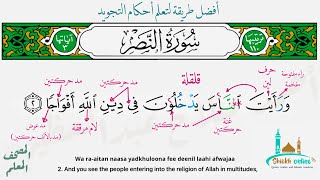 أفضل طريقة لتعلم أحكام التجويد
سُورَةُ النَّصْرِ
راء مفتوحة
حرف لين
قلقلة
مد حركتين
مد حركتين
وَرَأَيْتَ النَّاسَ يَدْخُلُونَ فِي دِينِ اللَّهِ أَفْوَاجًا ٢
غنة حركتين
مد حركتين
مد حركتين
لام مرققة
مد عوض
(مد بالألف حركتين)
المصحف المعلم
Sheikh online
Wa ra-aitan naasa yadkhuloona fee deenil laahi afwajaa
2. And you see the people entering into the religion of Allah in multitudes,